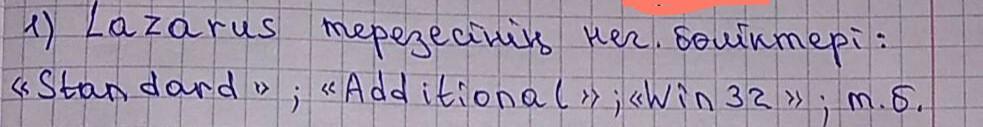 1) Lazarus терезесінің нег. бөліктері:
«Standard»; «Additional»; «Win 32»; т.б.